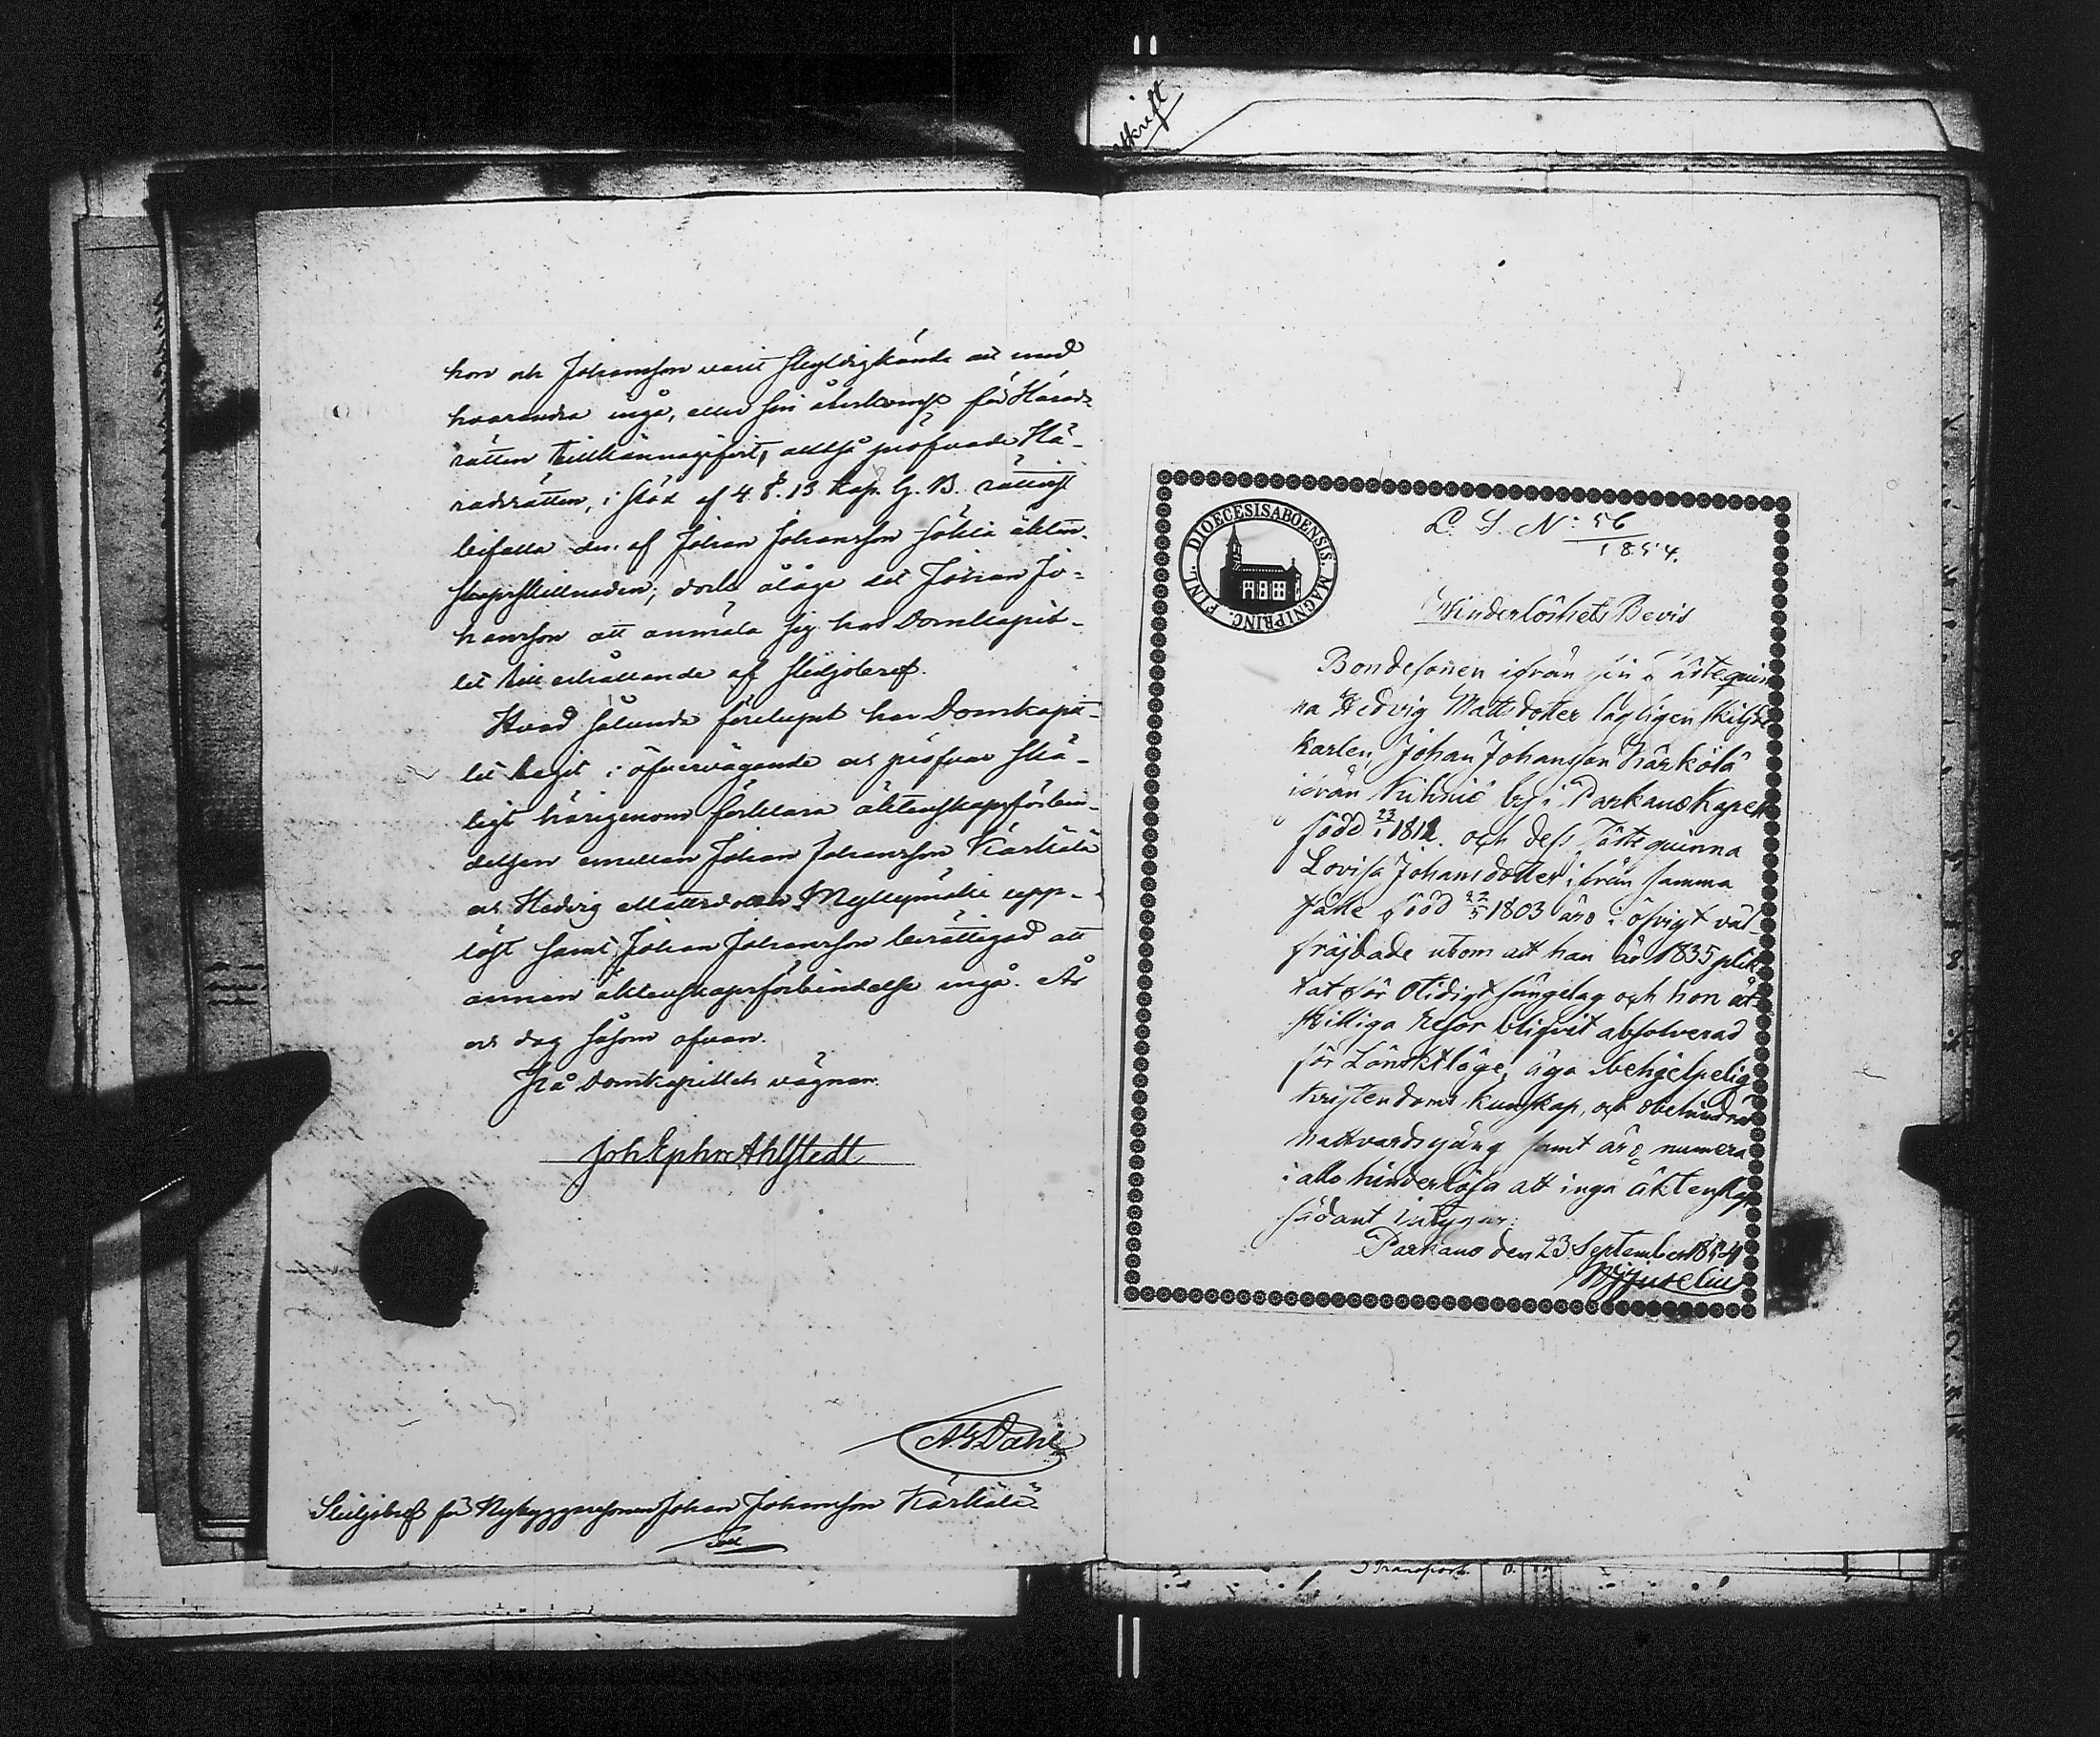 hon och Johansson varit skyldigkände att med
hvarandra ingå, eller sin återkomst för Härads-
rätten tillkännagifvit, alltså pröfvade Hä-
radsrätten, i stöd af 4. §. 13 Kap. G. B. rättvist
bifalla den af Johan Johansson sökta äkten-
skapsskillnaden; dock ålåge det Johan Jo-
hansson att anmäla sig hos Domkapit-
let till erhållande af skiljobref.
Hvad sålunda förelupit har Domkapit-
let tagit i öfvervägande och pröfvar skä-
ligt härigenom förklara äktenskapsförbin-
delsen emellan Johan Johansson Kärkölä
och Hedvig Mattsdotter Myllymäki upp-
löst samt Johan Johansson berättigad att
annan äktenskapsförbindelse ingå. År
och dag såsom ofvan.
På Domkapitlets vägnar.
Joh Ephr Ahlstedt
Dahl
Skiljobref för Nybyggaresonen Johan Johansson Kärkölä
utskrift
DIOECESIS ABOENSIS. MAGNI PRINC. FINL.
L. S. N:o 56
1854.
Hinderlöshets Bevis
Bondesonen ifrån sin fästequin
na Hedvig Mattsdotter lagligen skiljde
karlen Johan Johansson Kärkölä
ifrån Kihniö by i Parkano Kapell
född 1812. och dess Fästequinna
Lovisa Johansdotter ifrån samma
ställe född 1803 äro i öfrigt väl-
fräjdade utom att han år 1835 plik
tat för Otidigt sänglag och hon åt-
skilliga resor blifvit absolverad
för Lönskaläge, äga behjelpelig
kristendoms kunskap, och obehindrad
nattvardsgång samt äro numera
i allo hinderlösa att inga äktenskap
sådant intygar.
Parkano den 23 September 1854
Juselius
Transport.